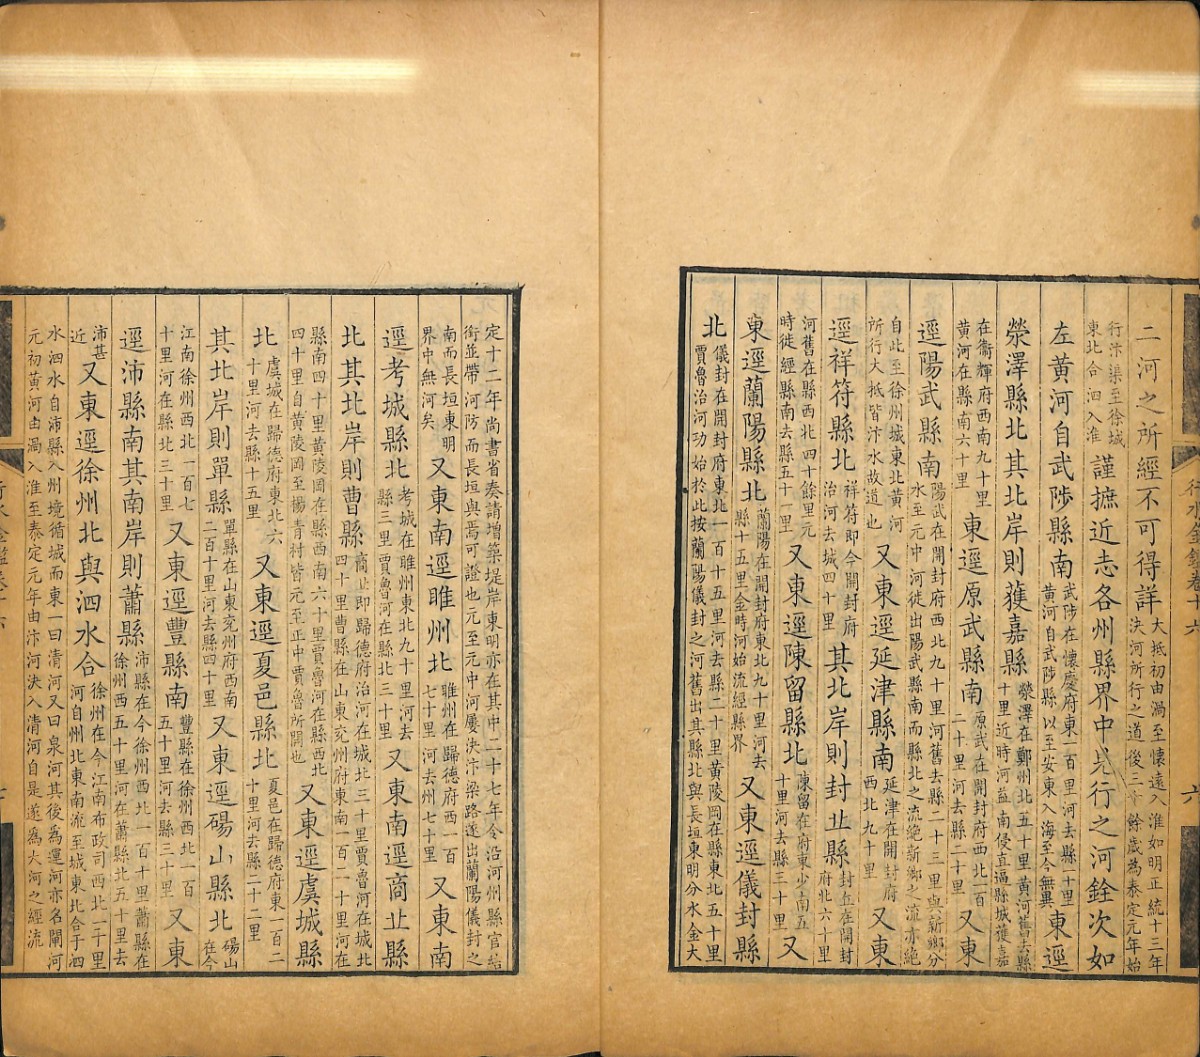 二河之所經不可得詳大抵初由渦至懷遠入淮如明正統十三年
決河所行之道後三十餘歲為泰定元年始
行汴渠至徐城
東北合泗入淮謹摭近志各州縣界中見行之河銓次如
左黃河自武陟縣南武陟在懷慶府東一百里河去縣十里
黃河自武陟縣以至安東入海至今無異東逕
滎澤縣北其北岸則獲嘉縣滎澤在鄭州北五十里黃河舊去縣
十里近時河益南侵直逼縣城獲嘉
在衞輝府西南九十里
黃河在縣南六十里東逕原武縣南原武在開封府西北一百
二十里河去縣二十里又東
逕陽武縣南陽武在開封府西北九十里河舊去縣二十三里與新鄉分
水至元中河徙出陽武縣南而縣北之流絶新鄉之流亦絶
自此至徐州城東北黃河
所行大抵皆汴水故道也又東逕延津縣南延津在開封府
西北九十里又東
逕祥符縣北祥符即今開封府
治河去城四十里其北岸則封丘縣封丘在開封
府北六十里
河舊在縣西北四十餘里元
時徙經縣南去縣五十一里又東逕陳留縣北陳留在府東少南五
十里河去縣三十里又
東逕蘭陽縣北蘭陽在開封府東北九十里河去
縣十五里金時河始流經縣界又東逕儀封縣
北儀封在開封府東北一百一十五里河去縣二十里黃陵岡在縣東北五十里
賈魯治河功始於此按蘭陽儀封之河舊出其縣北與長垣東明分水金大
定十二年尚書省奏請增築堤岸東明亦在其中二十七年令沿河州縣官結
銜並帶河防而長垣與焉可證也元至元中河屢決汴梁路遂出蘭陽儀封之
南而長垣東明
界中無河矣又東南逕睢州北睢州在歸德府西一百
七十里河去州七十里又東南
逕考城縣北考城在睢州東北九十里河去
縣三里賈魯河在縣北三十里又東南逕商丘縣
北其北岸則曹縣商丘即歸德府治河在城北三十里賈魯河在城北
四十里曹縣在山東兗州府東南一百一十里河在
縣南四十里黃陵岡在縣西南六十里賈魯河在縣西北
四十里自黃陵岡至楊青村皆元至正中賈魯所開也又東逕虞城縣
北虞城在歸德府東北六
十里河去縣十五里又東逕夏邑縣北夏邑在歸德府東一百二
十里河去縣二十二里
其北岸則單縣單縣在山東兗州府西南
二百十里河去縣四十里又東逕碭山縣北碭山
在今
江南徐州西北一百七
十里河在縣北三十里又東逕豐縣南豐縣在徐州西北一百
五十里河去縣三十里又東
逕沛縣南其南岸則蕭縣沛縣在今徐州西北一百十里蕭縣在
徐州西五十里河在蕭縣北五十里去
沛甚
近又東逕徐州北與泗水合徐州在今江南布政司西北一千里
河自州北東南流至城東北合于泗
水泗水自沛縣入州境循城而東一曰清河又曰泉河其後為運河亦名閘河
元初黃河由渦入淮至泰定元年由汴河決入清河自是遂為大河之經流